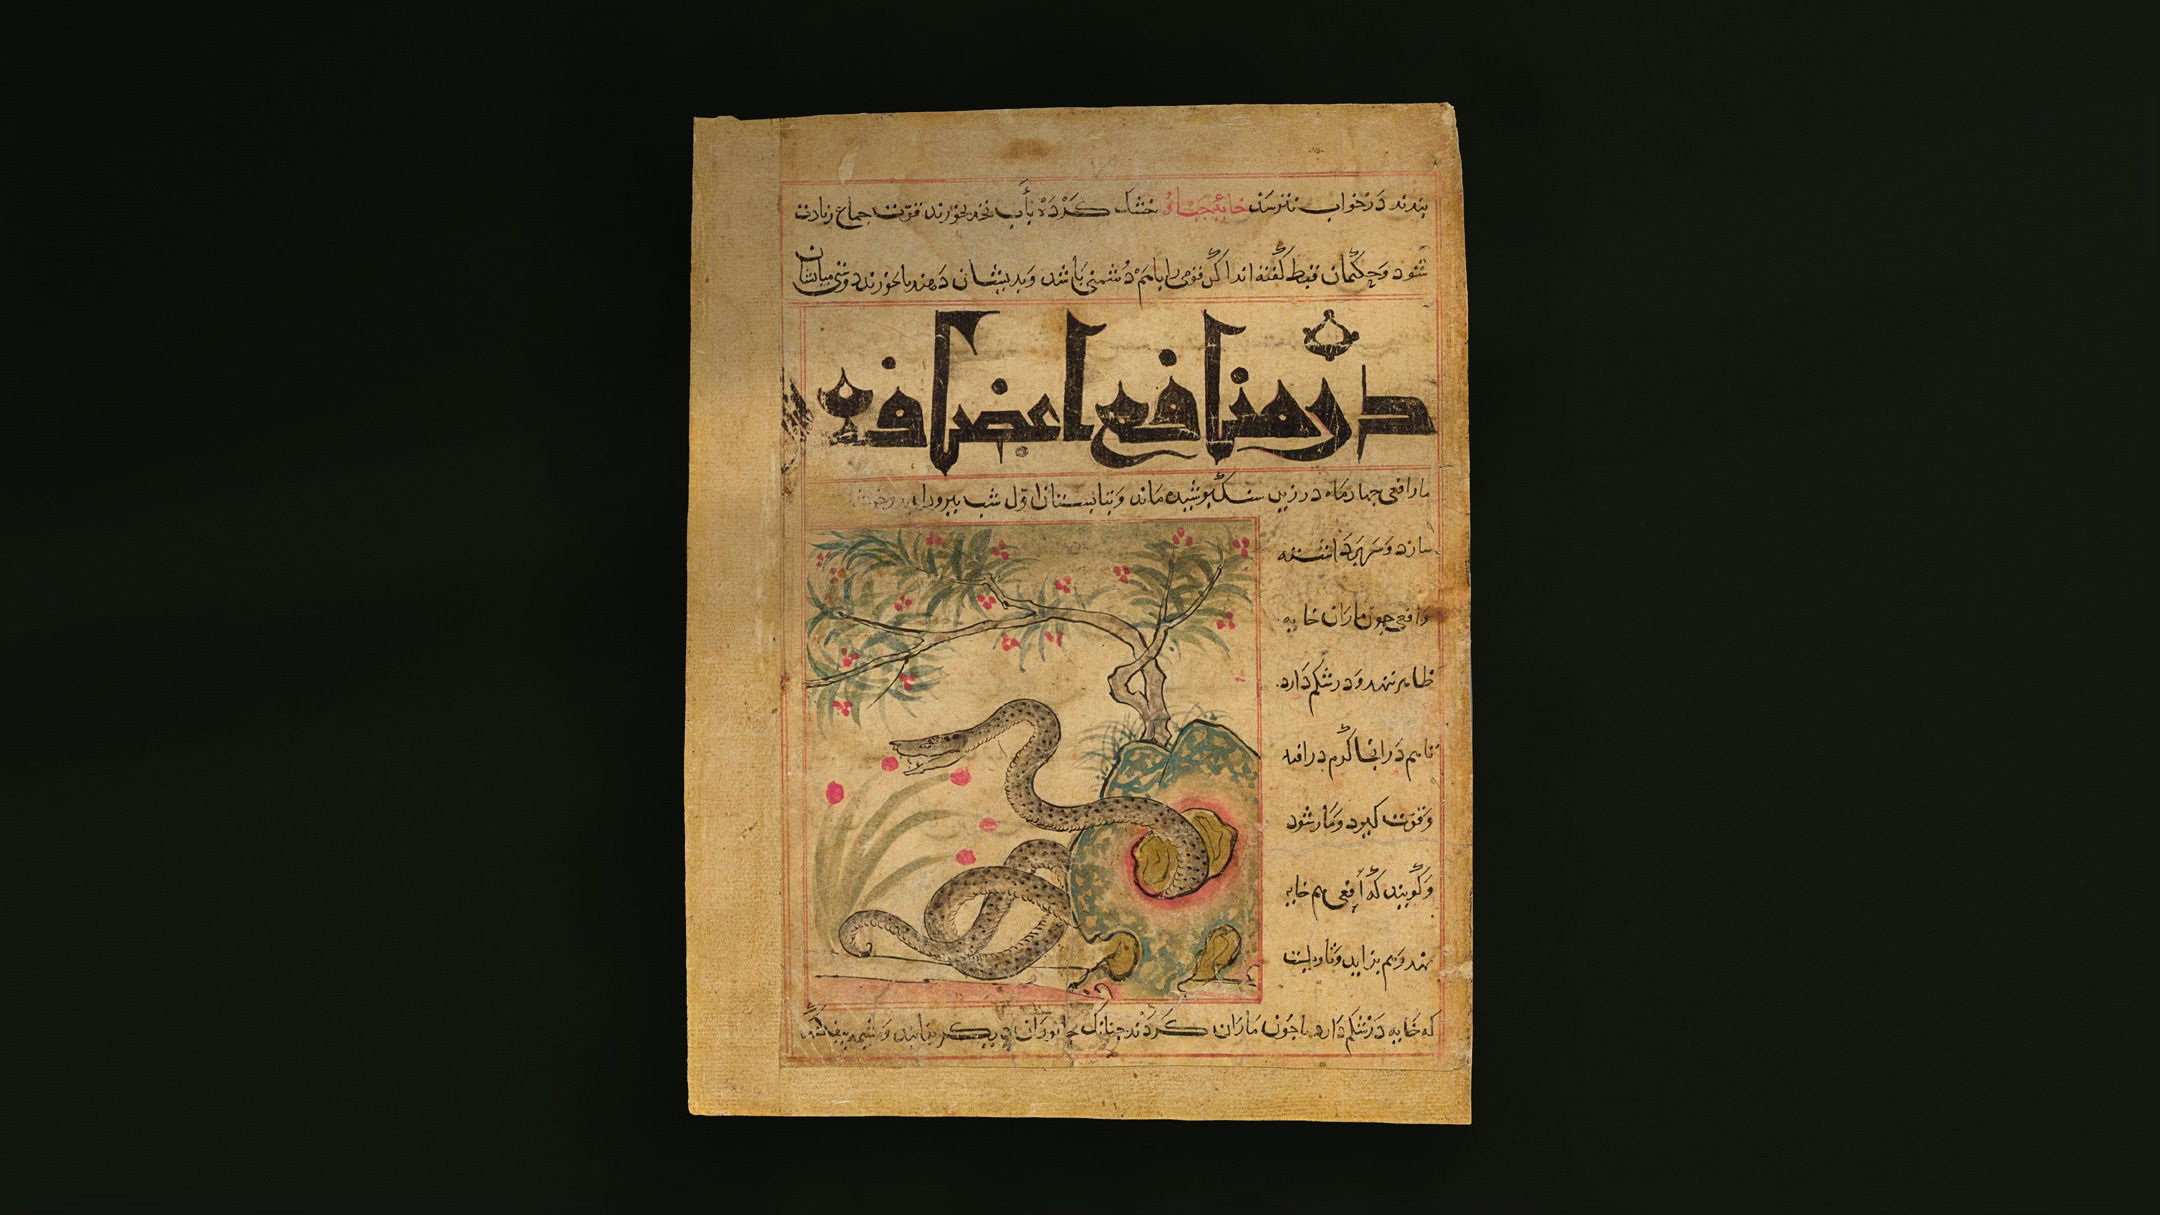 بندند در خواب نترسد خایه حباو خشک کرده بآب نخود بخورند قوت جماع زیادت
شود و حکیمان قبط گفته اند اگر قومی را باهم دشمنی باشد و بدیشان دهند تا بخورند دوستی میانشان
در منافع اعضاء
مار افعی چهار ماه در زمین سنگ پوشیده ماند و بتابستان اول شب بیرون آید و خواب
سازد و سر برداشته
و افعی چون ماران خایه
ظاهر ننهد و در شکم دارد
تا هم در آنجا گرم در افتد
و قوت گیرد و مار شود
و گویند که افعی هم خایه
نهد و هم بزاید و ناوه است
که خایه در شکم دارد تا چون ماران کردند چنانک جانوران دیگر بزایند و مشیمه بیفتد